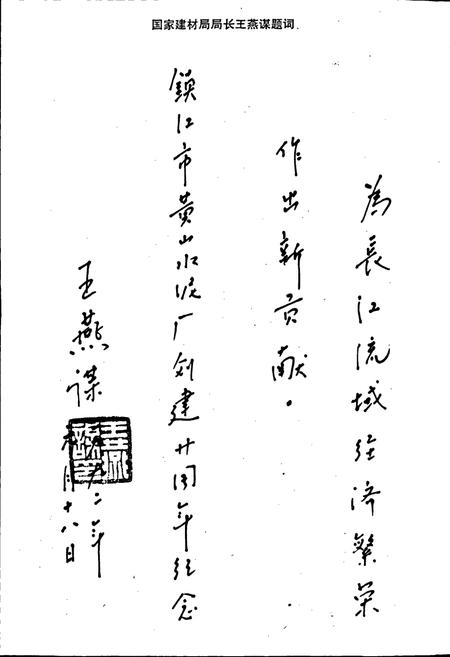 国家建材局局长王燕谋题词
為長江流域经济繁荣
作出新贡献。
鎮江市黄山水泥厂创建廿周年纪念
王燕谋
九二年
月十八日